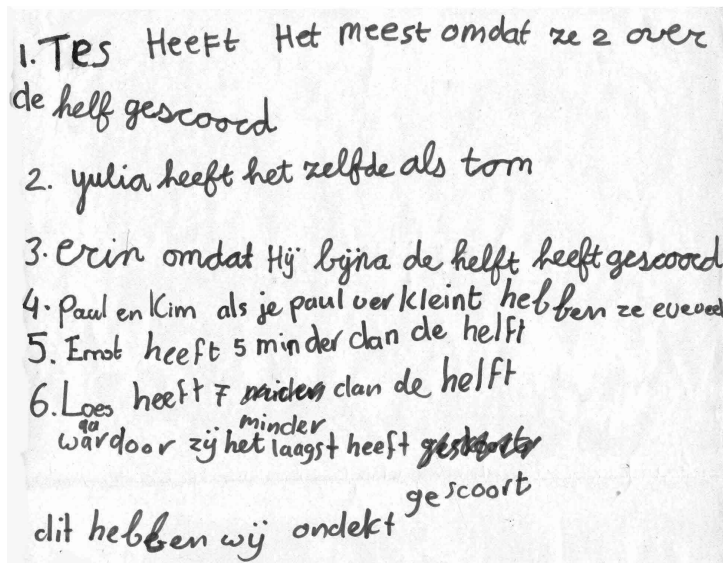 1. Tes Heeft Het meest omdat ze 2 over
de helf gescoord
2. yulia heeft het zelfde als tom
3. erin omdat Hij bijna de helft heeft gescoord
4. Paul en Kim als je paul verkleint hebben ze eveveel
5. Ernst heeft 5 minder dan de helft
6. Loes heeft 7 minder dan de helft
waardoor zij het laagst heeft gescoort
dit hebben wij ondekt